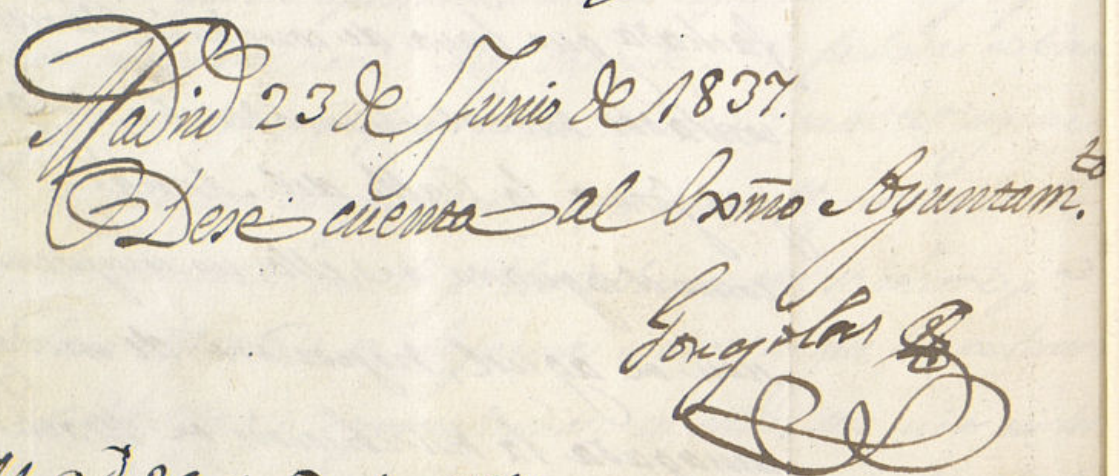 Madrid 23 de Junio de 1837.
Dese cuenta al Exmo Ayuntam.to